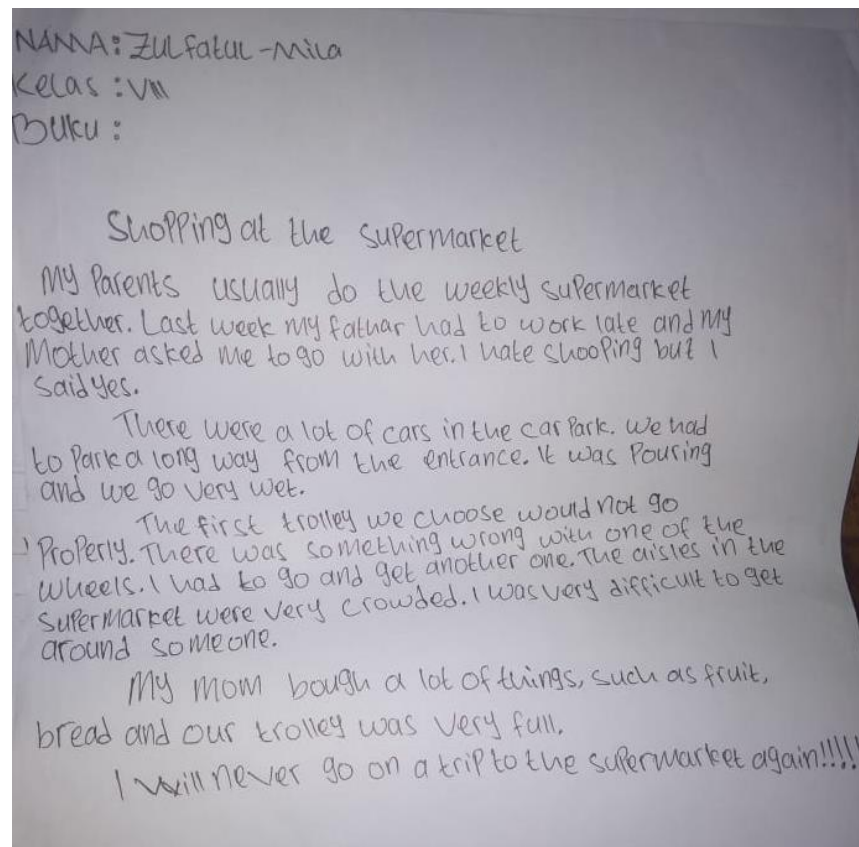 NAMA: Zulfatul-Mila
Kelas : VIII
Buku :
Shopping at the supermarket
My Parents usually do the weekly supermarket
together. Last week my fathar had to work late and my
Mother asked me to go with her. I hate shooping but I
said yes.
There were a lot of cars in the car Park. We had
to Park a long way from the entrance. It was Pouring
and we go very wet.
The first trolley we choose would not go
Properly. There was something wrong with one of the
wheels. I had to go and get another one. The aisles in the
supermarket were very crowded. I was very difficult to get
around someone.
My mom bough a lot of things, such as fruit,
bread and our trolley was very full.
I will never go on a trip to the supermarket again!!!!!